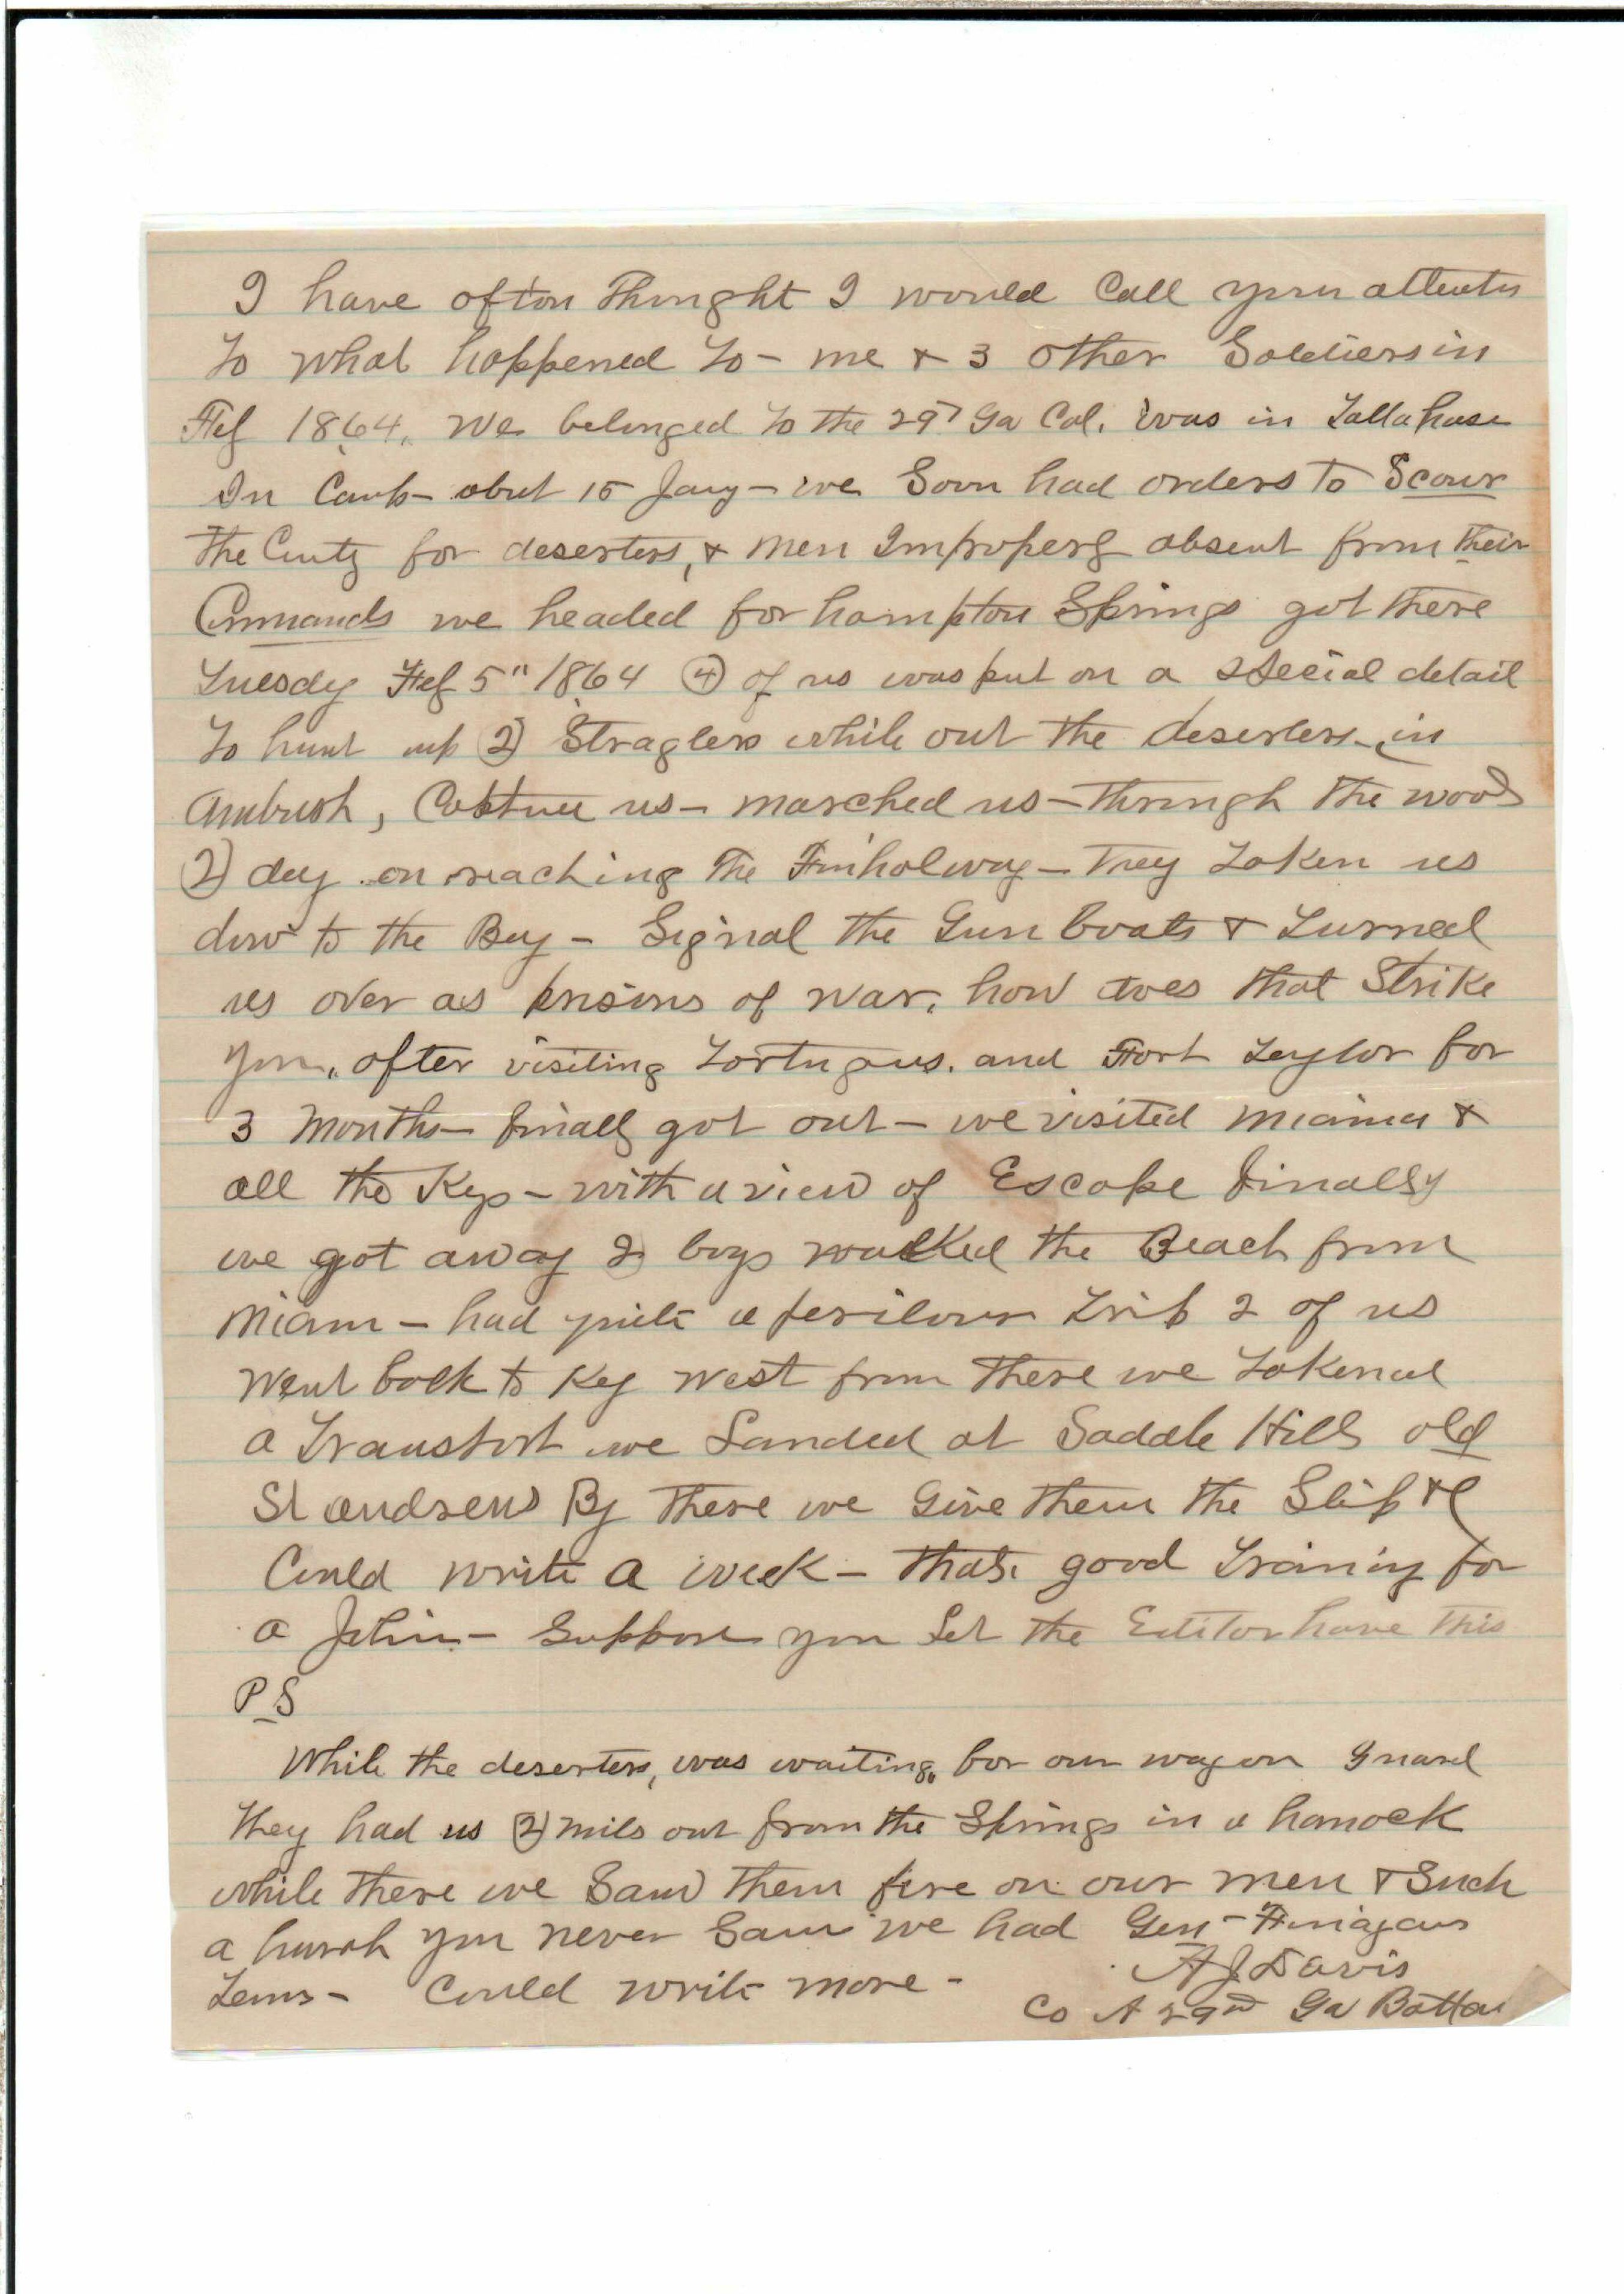 I have often Thought I would Call your attentn
To what happened To - me & 3 other Soldiers in
Feb 1864. We belonged To the 29 Ga Cal. was in Tallahase
In Camp - abut 15 Jany - we Soon had orders to Scour
The Cuty for deserters, & men Improperly absent from their
Commands we headed for hampton Springs got there
Tuesdy Feb 5" 1864 (4) of us was put on a Special detail
To hunt up (2) Straglers while out the deserters - in
Ambush, Capture us - marched us - through the woods
(2) day on reaching The Finholway - They Taken us
dow to the Bay - Signal the Gun boats & Turned
us over as prisons of war. how does that Strike
you, after visiting Tortugus. and Fort Taylor for
3 Months - finally got out - we visited miama &
all the Keys - with a view of Escape finally
we got away 2 boys walked the Beach from
Miam - had quite a perilous Trip 2 of us
Went back to Key West from There we Taken
a Transport we Landed at Saddle Hills old
St andrews By There we Give them the Slip & I
Could write a week - thats good Traning for
a John - Suppose you Let the Editor have This
P S
While the deserters, was waiting for our wagon Guard
They had us (2) mils out from the Springs in a hamock
while there we Saw Them fire on our men & Such
a you never Saw we had Gen - Finagans
Tems - Could write more -
A J Davis
Co A 29nd Ga Battal